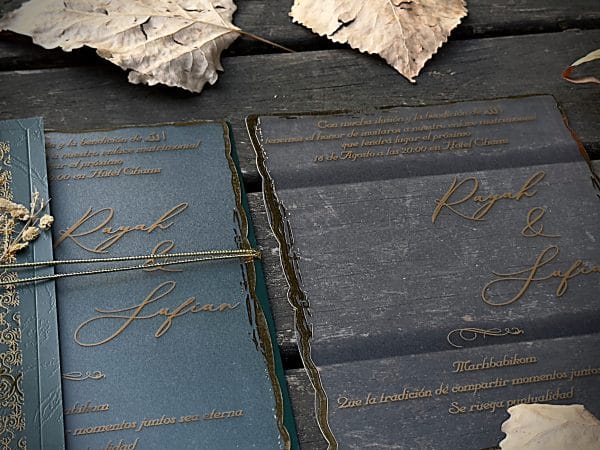 la bendición de الله
a nuestro enlace matrimonial
ar el próximo
las 20:00 en Hotel
Rayah
&
Sufian
babikom
momentos juntos sea eterna
Con mucha ilusión y la bendición de الله
tenemos el honor de invitaros a nuestro enlace matrimonial
que tendrá lugar el próximo
16 de Agosto a las 20:00 en Hotel
Rayah
&
Sufian
Marhbabikom
Que la tradición de compartir momentos juntos
Se ruega puntualidad